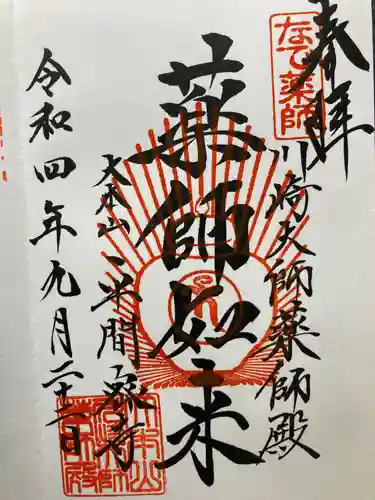 奉拝
なで薬師
川崎大師薬師殿
薬師如来
大本山
平間寺
令和四年九月二十二日